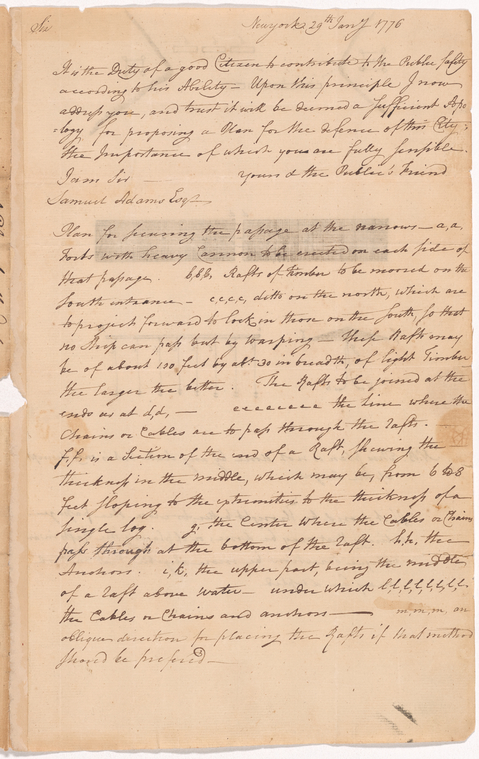 Sir Newyork 29th Jany 1776
It is the Duty of a good Citizen to contribute to the Public Safety
according to his Ability — Upon this principle I now
address you, and trust it will be deemed a sufficient Apo
-logy for proposing a Plan for the defence of this City;
the Importance of which you are fully sensible.
I am Sir — Yours & the Public's Friend
Samuel Adams Esqr
Plan for securing the passage at the narrows — a,a,
Forts with heavy Cannon to be erected on each side of
that passage. b,b,b, Rafts of timber to be moored on the
South entrance — c,c,c,c, ditto on the north, which are
to project forward to lock in those on the South, so that
no ship can pass but by warping — these Rafts may
be of about 100 feet by abt. 30 in breadth, of light Timber
the larger the better. The Rafts to be joined at the
ends as at d,d, — eeeeeeee the line where the
Chains or Cables are to pass through the rafts.
f.f. is a Section of the end of a Raft, shewing the
thickness in the middle, which may be, from 6 to 8
feet sloping to the extremities to the thickness of a
single log. g, the Center where the Cables or Chains
pass through at the bottom of the raft. h.h, the
Anchors. i,k, the upper part, being the middle
of a raft above water — under which l,l,l,l,l,l,l.
the Cables or Chains and anchors — m,m,m, an
oblique direction for placing the Rafts if that method
should be prefered —